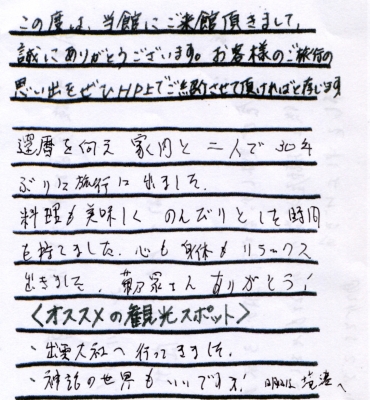 この度は、当館にご来館頂きまして、
誠にありがとうございます。お客様のご旅行の
思い出をぜひHP上でご紹介させて頂ければと存じます
還暦を迎え 家内と 二人で 30年
ぶりに旅行に出ました.
料理も美味しく のんびりとした時間
も持てました. 心も身体もリラックス
出きました. ありがとう!
<オススメの観光スポット>
・出雲大社へ行ってきました.
・神話の世界もいいですネ! 明日は 境港へ